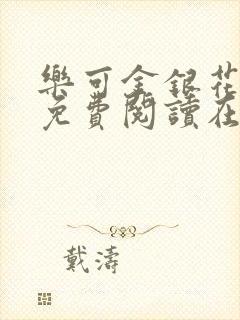 樂可金銀花
免費閱讀在
戴濤